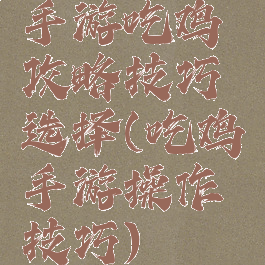 手游吃鸡
攻略技巧
选择(吃鸡
手游操作
技巧)